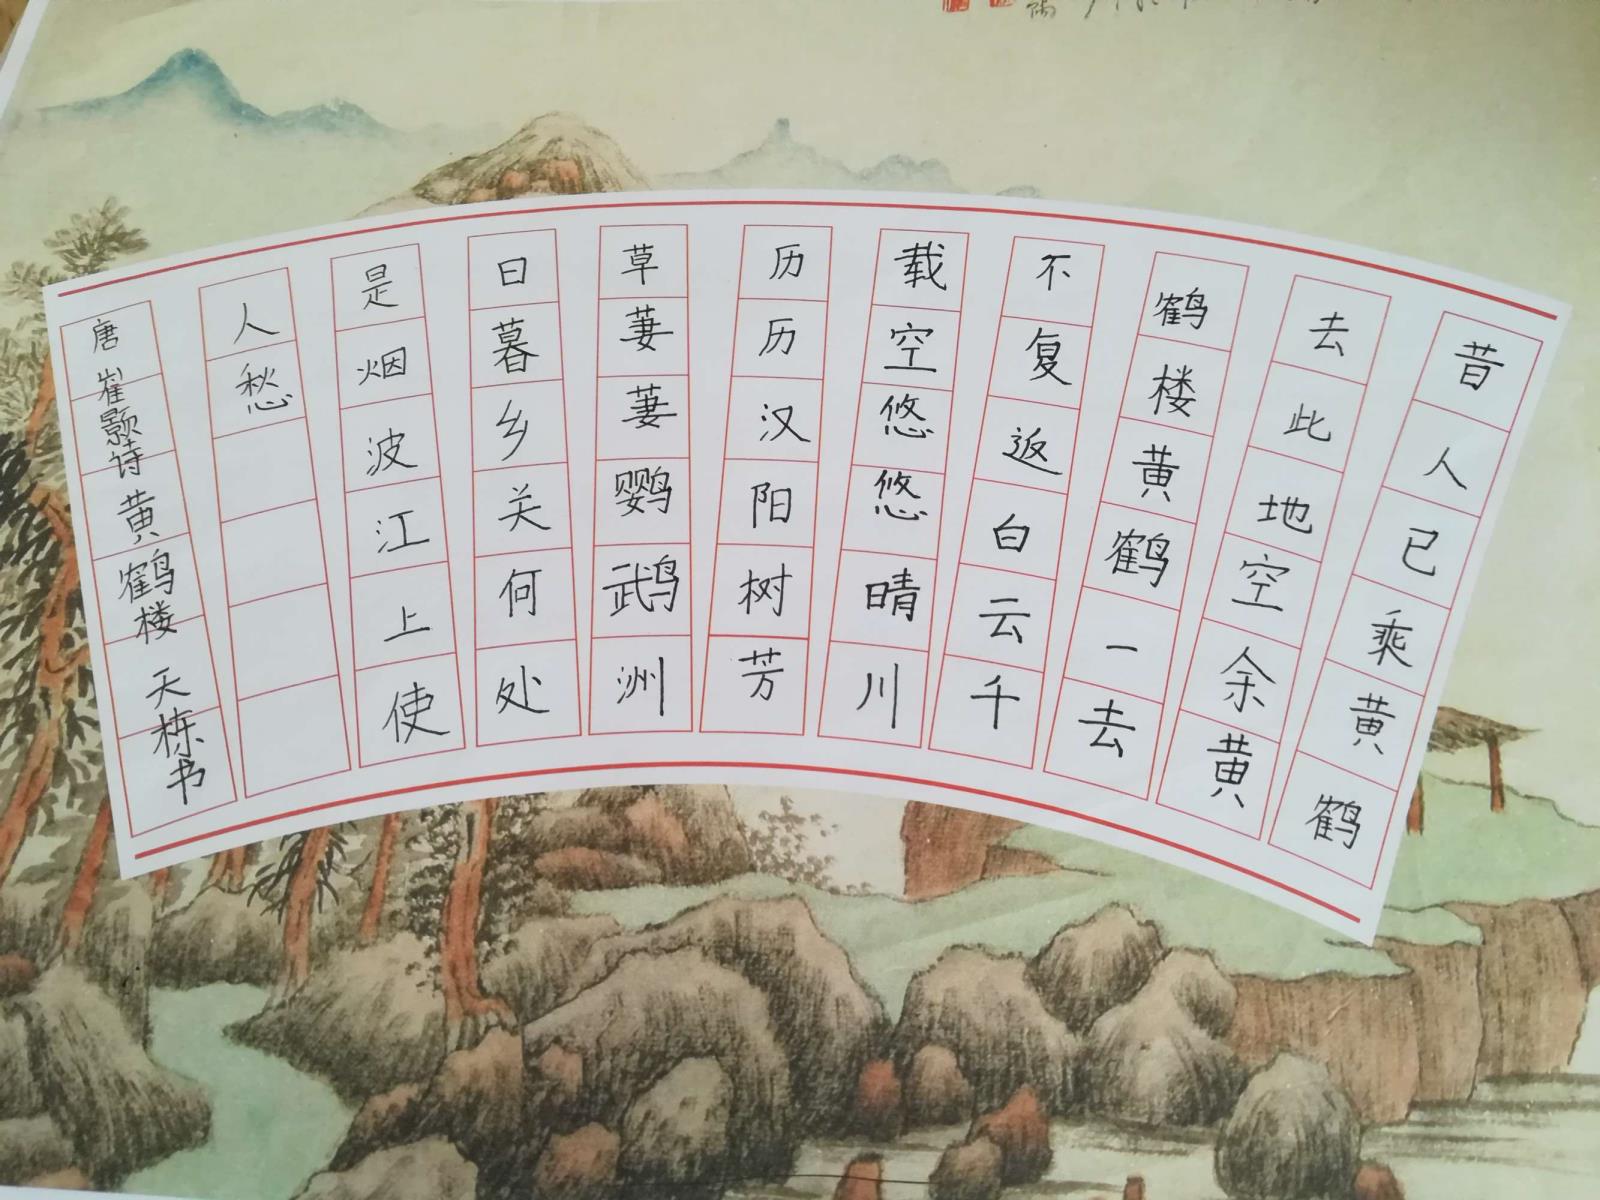 昔人已乘黄鹤
去此地空余黄
鹤楼黄鹤一去
不复返白云千
载空悠悠晴川
历历汉阳树芳
草萋萋鹦鹉洲
日暮乡关何处
是烟波江上使
人愁
唐崔颢诗黄鹤楼 天栋书